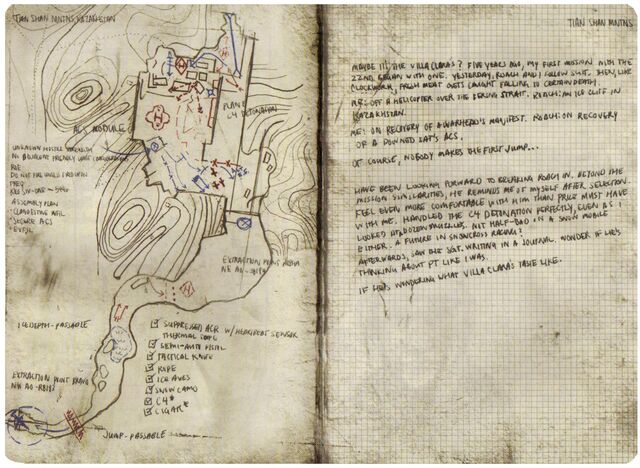 TIAN SHAN MNTNS, KAZAKHSTAN
PLAN B
C4 DETONATION
ACS MODULE
UNKNOWN HOSTILE STRENGTH
NO ADJACENT FRIENDLY UNITS
ROE
DO NOT FIRE UNLESS FIRED UPON
FREQ
ASSEMBLY PLAN
- CLANDESTINE INFIL
- SECURE ACS
- EVASION
EXTRACTION POINT
ICE DEPTH - PASSABLE
EXTRACTION POINT BRAVO
JUMP - PASSABLE
SUPPRESSED ACR W/ HEARTBEAT SENSOR
THERMAL SCOPE
SEMI-AUTO PISTOL
TACTICAL KNIFE
ROPE
ICE AXES
SNOW CAMO
C4*
CIGAR*
TIAN SHAN MNTNS
MAYBE IT'S THE VILLA CLARAS? FIVE YEARS AGO, MY FIRST MISSION WITH THE
22ND BEGAN WITH ONE. YESTERDAY, ROACH AND I FOLLOW SUIT. THEN, LIKE
CLOCKWORK, FRESH MEAT GETS CAUGHT FALLING TO CERTAIN DEATH.
ME: OFF A HELICOPTER OVER THE BERING STRAIT. ROACH: AN ICE CLIFF IN
KAZAKHSTAN.
ME: ON RECOVERY OF A WARHEAD'S MANIFEST. ROACH: ON RECOVERY
OF A DOWNED SAT'S ACS.
OF COURSE, NOBODY MAKES THE FIRST JUMP...
HAVE BEEN LOOKING FORWARD TO BREAKING ROACH IN. BEYOND THE
MISSION SIMILARITIES, HE REMINDS ME OF MYSELF AFTER SELECTION.
FEEL EVEN MORE COMFORTABLE WITH HIM THAN PRICE MUST HAVE
WITH ME. HANDLED THE C4 DETONATION PERFECTLY, EVEN AS I
LOOKED AT DOZEN MUZZLES. NOT HALF-BAD ON A SNOW MOBILE
EITHER. A FUTURE IN SNOWCROSS RACING?
AFTERWARDS, SAW THE SGT. WRITING IN A JOURNAL. WONDER IF HE'S
THINKING ABOUT PT LIKE I WAS.
IF HE'S WONDERING WHAT VILLA CLARAS TASTE LIKE.